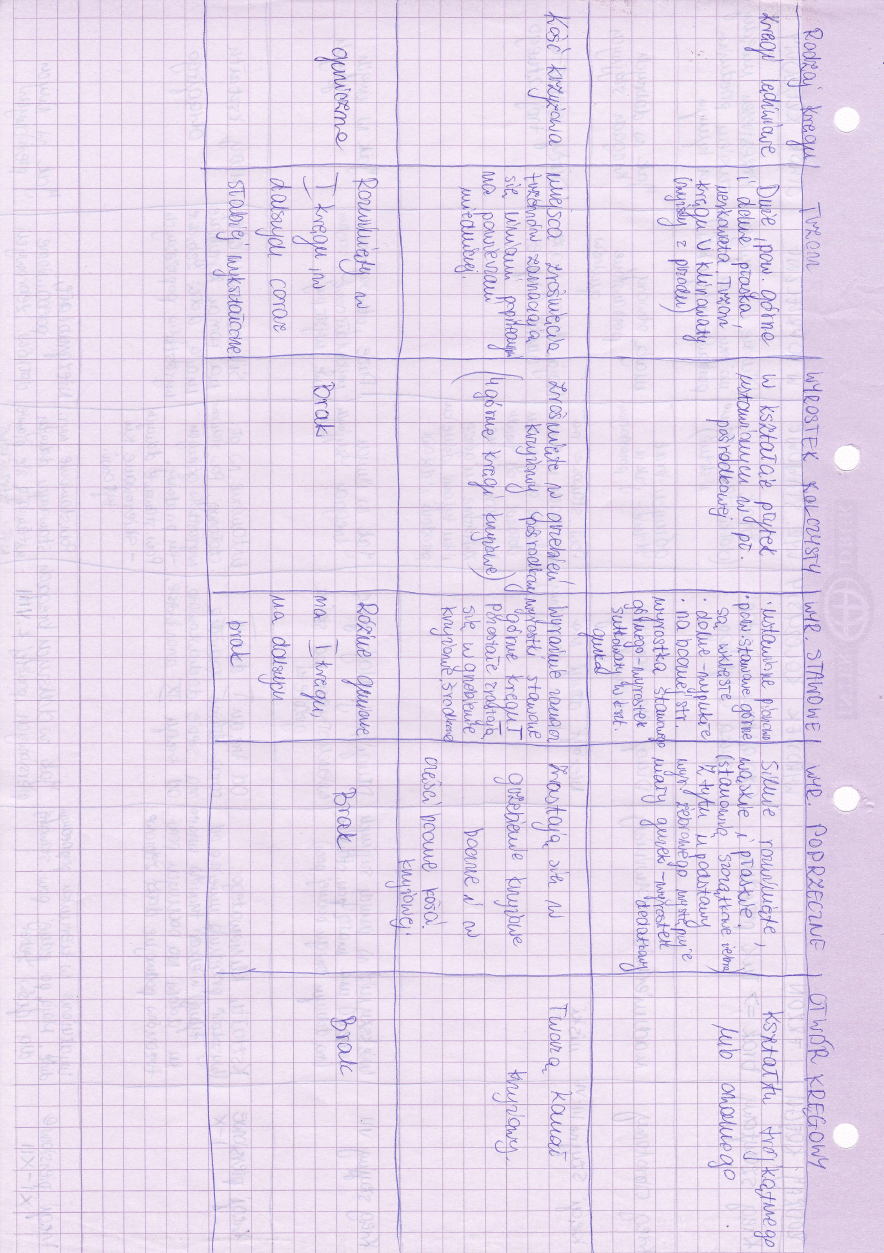 Rodzaj kręgu
TRZON
WYROSTEK KOLCZYSTY
WYR. STAWOWE
WYR. POPRZECZNE
OTWÓR KRĘGOWY
Kręgi lędźwiowe
Duże, pow górne
i dolne płaska,
nerkowata. Trzon
kręgu V klinowaty
(wyższy z przodu)
w kształcie płytek
ustawionych w pł.
pośrodkowej
· ustawione pionowo
· pow. stawowe górne
są wklęsłe
· dolne - wypukłe
· na bocznej str.
wyrostka stawowego
górnego - wyrostek
sutkowaty
Silnie rozwinięte,
wąskie i płaskie.
(stanowią szczątkowe żebra)
Z tyłu u podstawy
wyr. żebrowego występuje
mały guzek - wyrostek
dodatkowy
Kształtu trójkątnego
lub owalnego
Kość krzyżowa
miejsca zrośnięcia
trzonów zaznaczają
się liniami poprzecznymi
na powierzchni
miednicznej.
Zrośnięte w grzebień
krzyżowy pośrodkowy
(4 górne kręgi krzyżowe)
Wyraźnie zaznacz
wyrostki stawowe
górne kręgu I
pozostałe zrastają
się w grzebienie
krzyżowe pośrednie
Zrastają się w
grzebienie krzyżowe
boczne i w
części boczne kości
krzyżowej.
Tworzą kanał
krzyżowy.
guziczna
Rozwinięty w
I kręgu, w
dalszych coraz
słabiej wykształcone
Brak
Rożne guziczne
na I kręgu,
na dalszych
brak
Brak
Brak